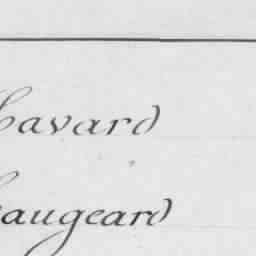 avard
augeard